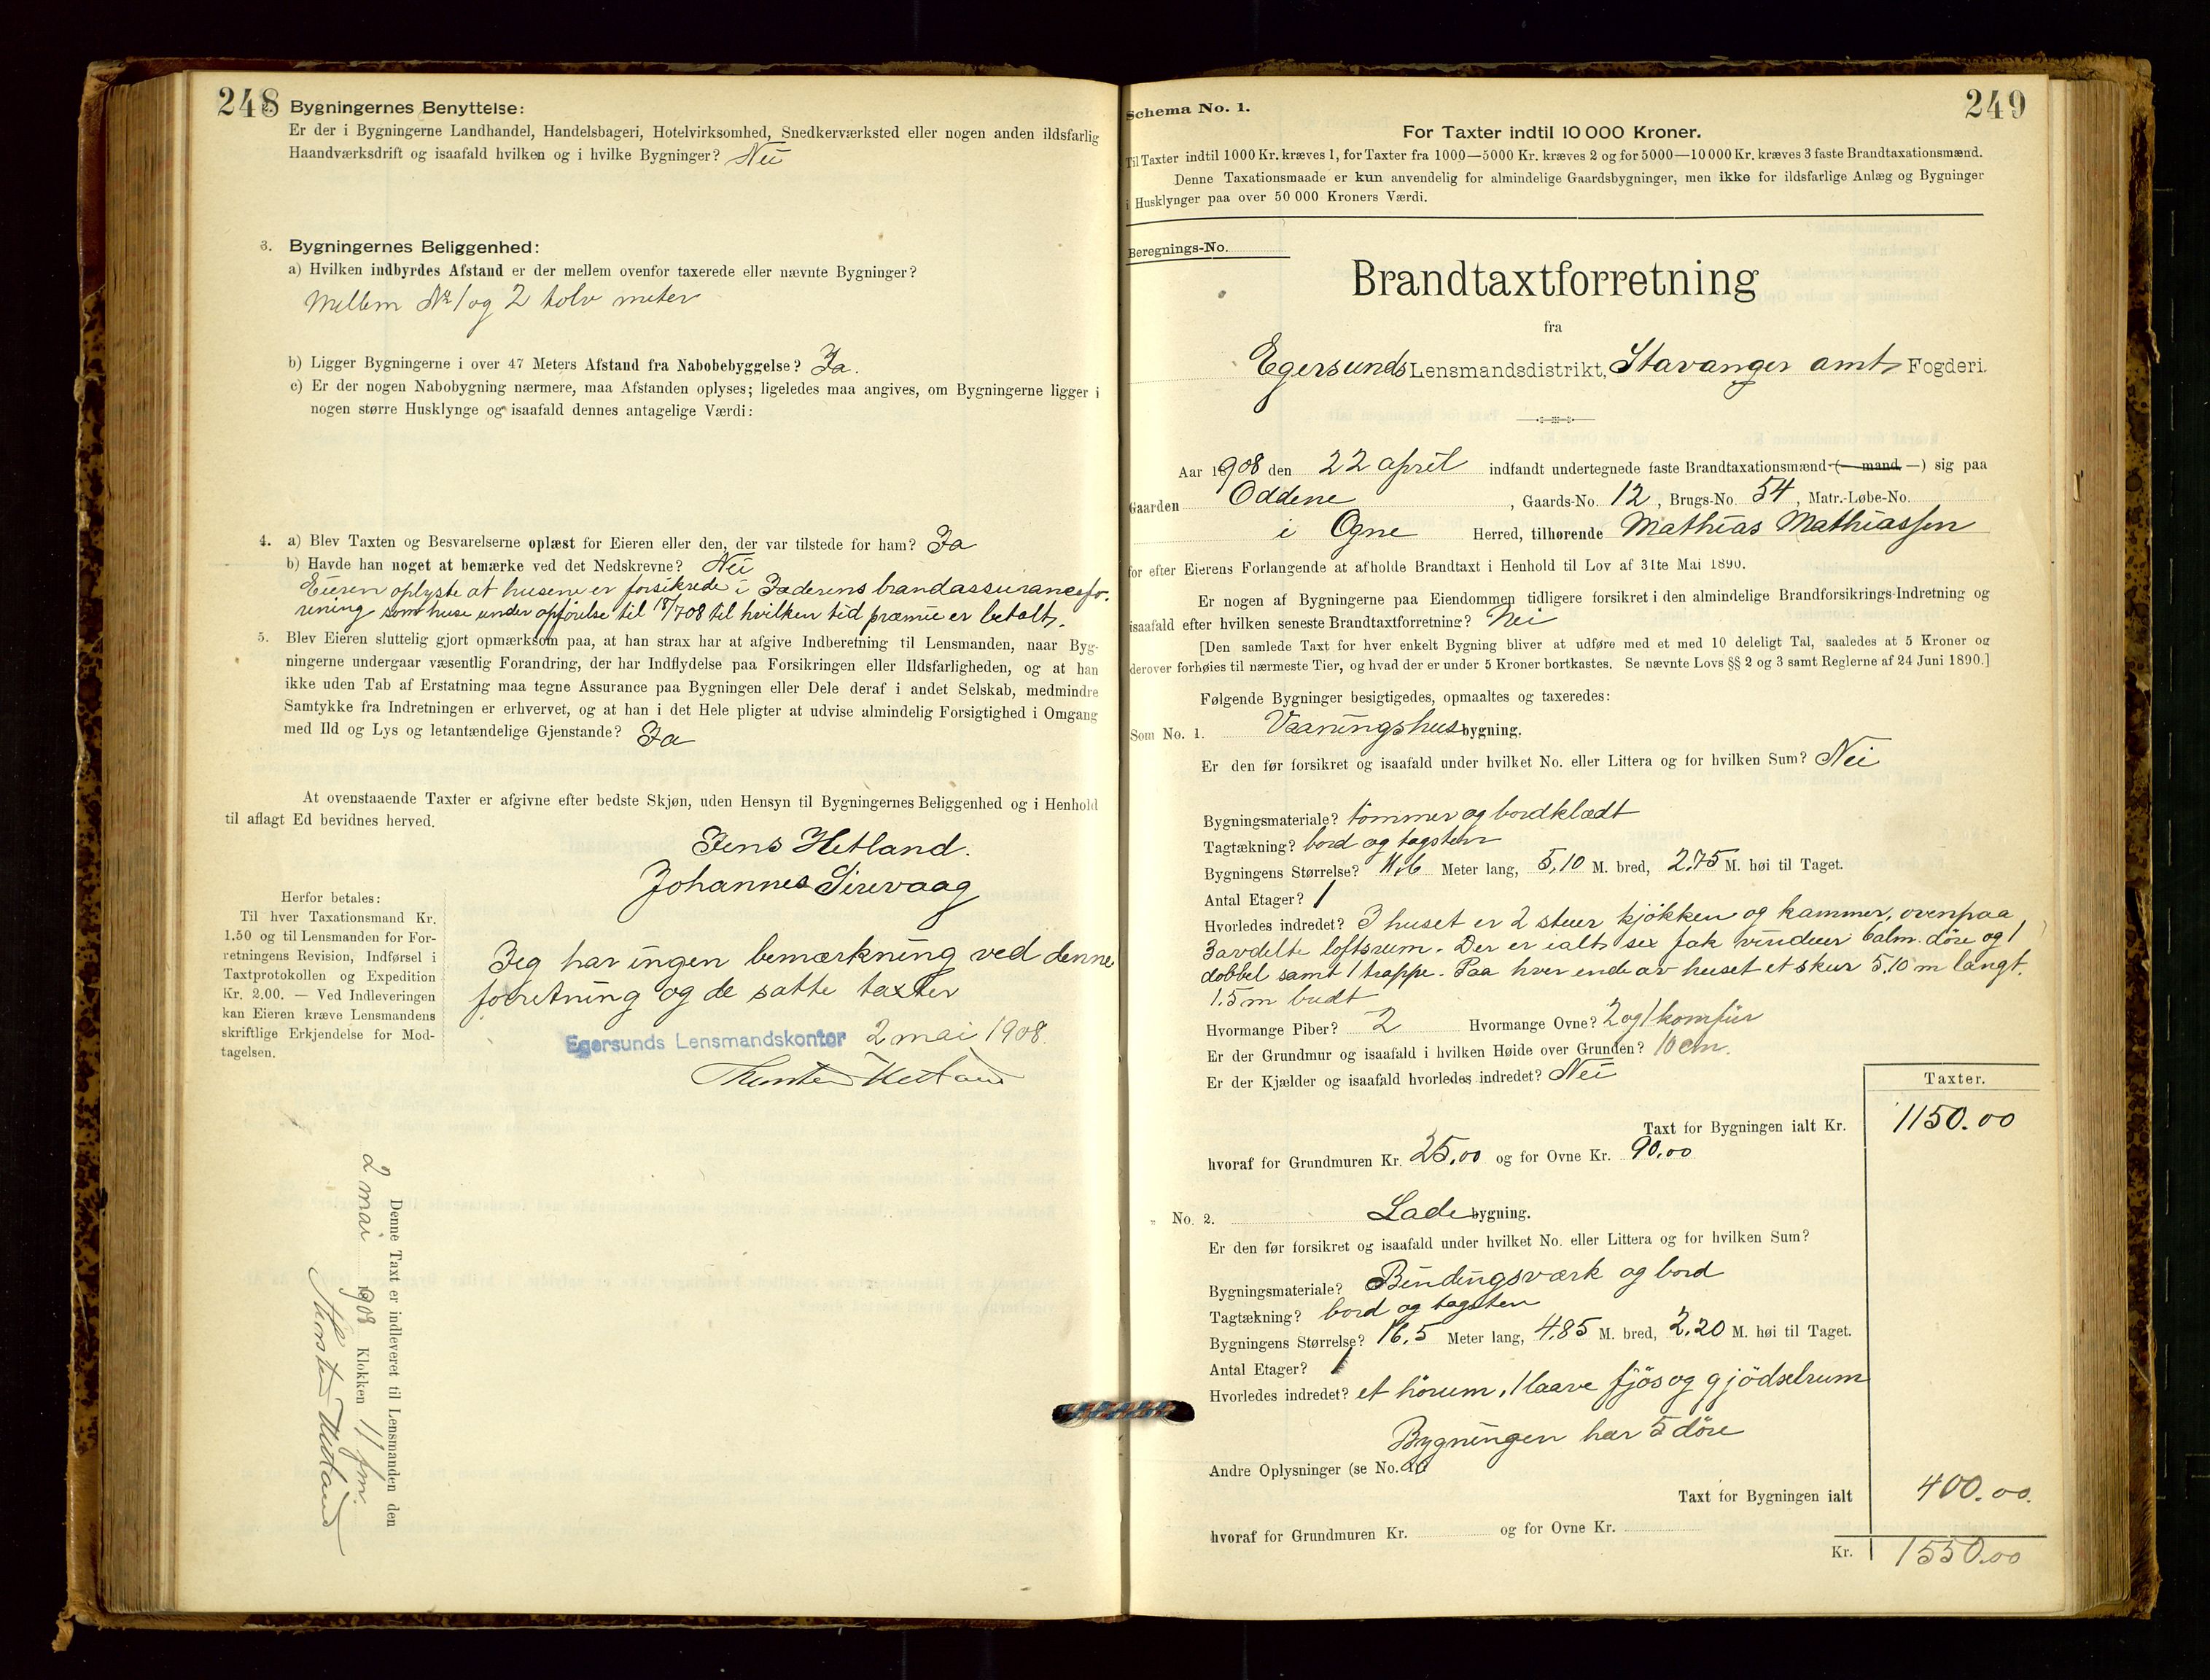 248
2. Bygningernes Benyttelse:
Er der i Bygningerne Landhandel, Handelsbageri, Hotelvirksomhed, Snedkerværksted eller nogen anden ildsfarlig
Haandværksdrift og isaafald hvilken og i hvilke Bygninger? Nei
3. Bygningernes Beliggenhed:
a) Hvilken indbyrdes Afstand er der mellem ovenfor taxerede eller nævnte Bygninger?
Mellem No 1 og 2 tolv meter
b) Ligger Bygningerne i over 47 Meters Afstand fra Nabobebyggelse? Ja.
c) Er der nogen Nabobygning nærmere, maa Afstanden oplyses; ligeledes maa angives, om Bygningerne ligger i
nogen større Husklynge og isaafald dennes antagelige Værdi:
4. a) Blev Taxten og Besvarelserne oplæst for Eieren eller den, der var tilstede for ham? Ja
b) Havde han noget at bemærke ved det Nedskrevne? Nei
Eieren oplyste at husene er forsikrede i Jæderens brandassurancefo-
rening som huse under opførelse til 18/7 08 til hvilken tid præmie er betalt.
5. Blev Eieren sluttelig gjort opmærksom paa, at han strax har at afgive Indberetning til Lensmanden, naar Byg-
ningerne undergaar væsentlig Forandring, der har Indflydelse paa Forsikringen eller Ildsfarligheden, og at han
ikke uden Tab af Erstatning maa tegne Assurance paa Bygningen eller Dele deraf i andet Selskab, medmindre
Samtykke fra Indretningen er erhvervet, og at han i det Hele pligter at udvise almindelig Forsigtighed i Omgang
med Ild og Lys og letantændelige Gjenstande? Ja
At ovenstaaende Taxter er afgivne efter bedste Skjøn, uden Hensyn til Bygningernes Beliggenhed og i Henhold
til aflagt Ed bevidnes herved.
Jens Hetland.
Johannes Sirevaag
Herfor betales:
Til hver Taxationsmand Kr.
1.50 og til Lensmanden for For-
retningens Revision, Indførsel i
Taxtprotokollen og Expedition
Kr. 2.00. — Ved Indleveringen
kan Eieren kræve Lensmandens
skriftlige Erkjendelse for Mod-
tagelsen.
Jeg har ingen bemærkning ved denne
forretning og de satte taxter
Egersunds Lensmandskontor 2 mai 1908.
Thorsten Hetland
Denne Taxt er indleveret til Lensmanden den
2 mai 1908 Klokken 11 fm.
Thorsten Hetland
249
Schema No. 1.
For Taxter indtil 10 000 Kroner.
Til Taxter indtil 1000 Kr. kræves 1, for Taxter fra 1000—5000 Kr. kræves 2 og for 5000—10 000 Kr. kræves 3 faste Brandtaxationsmænd.
Denne Taxationsmaade er kun anvendelig for almindelige Gaardsbygninger, men ikke for ildsfarlige Anlæg og Bygninger
i Husklynger paa over 50 000 Kroners Værdi.
Beregnings-No.
Brandtaxtforretning
fra
Egersunds Lensmandsdistrikt, Stavanger amts Fogderi.
Aar 1908 den 22 april indfandt undertegnede faste Brandtaxationsmænd (— mand —) sig paa
Gaarden Oddene, Gaards-No. 12, Brugs-No. 54, Matr.-Løbe-No.
i Ogne Herred, tilhørende Mathias Mathiassen
for efter Eierens Forlangende at afholde Brandtaxt i Henhold til Lov af 31te Mai 1890.
Er nogen af Bygningerne paa Eiendommen tidligere forsikret i den almindelige Brandforsikrings-Indretning og
isaafald efter hvilken seneste Brandtaxtforretning? Nei
[Den samlede Taxt for hver enkelt Bygning bliver at udføre med et med 10 deleligt Tal, saaledes at 5 Kroner og
derover forhøies til nærmeste Tier, og hvad der er under 5 Kroner bortkastes. Se nævnte Lovs §§ 2 og 3 samt Reglerne af 24 Juni 1890.]
Følgende Bygninger besigtigedes, opmaaltes og taxeredes:
Som No. 1. Vaaningshusbygning.
Er den før forsikret og isaafald under hvilket No. eller Littera og for hvilken Sum? Nei
Bygningsmateriale? tømmer og bordklædt
Tagtækning? bord og tagsten
Bygningens Størrelse? Meter lang, 5,10 M. bred, 2,75 M. høi til Taget.
Antal Etager? 1
Hvorledes indredet? I huset er 2 stuer kjøkken og kammer, ovenpaa
3 avdelte loftsrum. Der er ialt sex fak vinduer 6 alm. døre og 1
dobbel samt 1 trappe. Paa hver ende av huset et skur 5,10 m langt.
1.5 m bredt
Hvormange Piber? 2 Hvormange Ovne? 2 og 1 komfür
Er der Grundmur og isaafald i hvilken Høide over Grunden? 10 cm.
Er der Kjælder og isaafald hvorledes indredet? Nei
Taxter.
Taxt for Bygningen ialt Kr. 1150.00
hvoraf for Grundmuren Kr. 25,00 og for Ovne Kr. 90,00
" No. 2. Ladebygning.
Er den før forsikret og isaafald under hvilket No. eller Littera og for hvilken Sum?
Bygningsmateriale? Bindingsværk og bord
Tagtækning? bord og tagsten
Bygningens Størrelse? 16,5 Meter lang, 4,85 M. bred, 2,20 M. høi til Taget.
Antal Etager? 1
Hvorledes indredet? et hörum, 1 laave fjös og gjödselrum
Bygningen har 5 døre
Andre Oplysninger (se No. 1)?
Taxt for Bygningen ialt 400.00.
hvoraf for Grundmuren Kr. og for Ovne Kr.
Kr. 1550.00